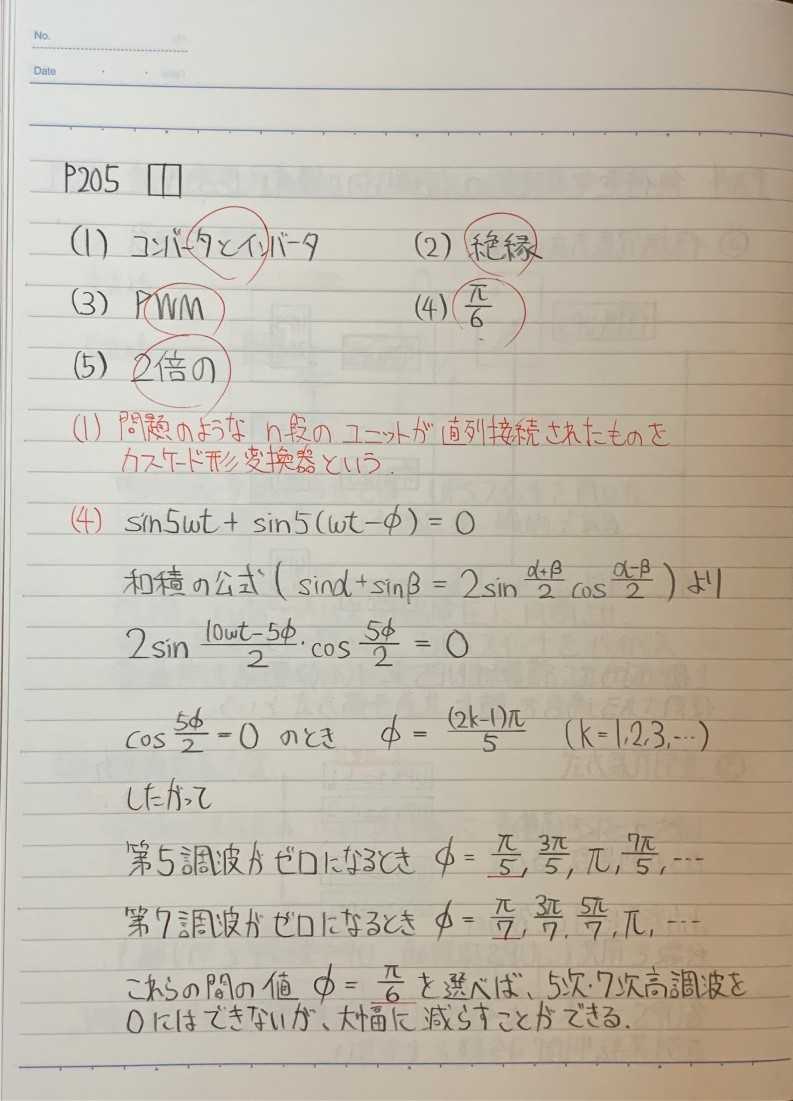 No.
Date
P205 1
(1) コンバータとインバータ (2) 絶縁
(3) PWM (4) π/6
(5) 2倍の
(1) 問題のような n段の ユニットが 直列接続されたものを
カスケード形変換器という.
(4) sin5ωt + sin5(ωt-φ) = 0
和積の公式 ( sinα+sinβ = 2sin (α+β)/2 cos (α-β)/2 ) より
2sin (10ωt-5φ)/2 ・ cos 5φ/2 = 0
cos 5φ/2 = 0 のとき φ = (2k-1)π/5 (k=1,2,3,…)
したがって
第5調波がゼロになるとき φ = π/5, 3π/5, π, 7π/5, …
第7調波がゼロになるとき φ = π/7, 3π/7, 5π/7, π, …
これらの間の値 φ = π/6 を選べば、5次・7次高調波を
0にはできないが、大幅に減らすことができる.